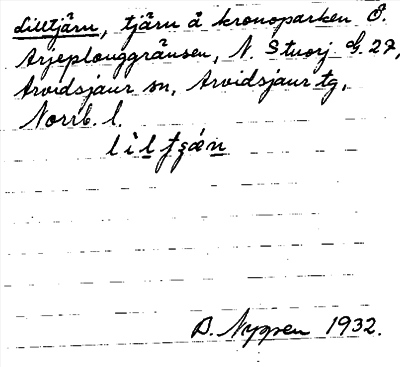 Lilltjärn, tjärn å kronoparken Ö.
Arjeplouggränsen, N. Stuorj G. 27,
Arvidsjaur sn, Arvidsjaur tg,
Norrb. l.
B. Nyppen 1932.